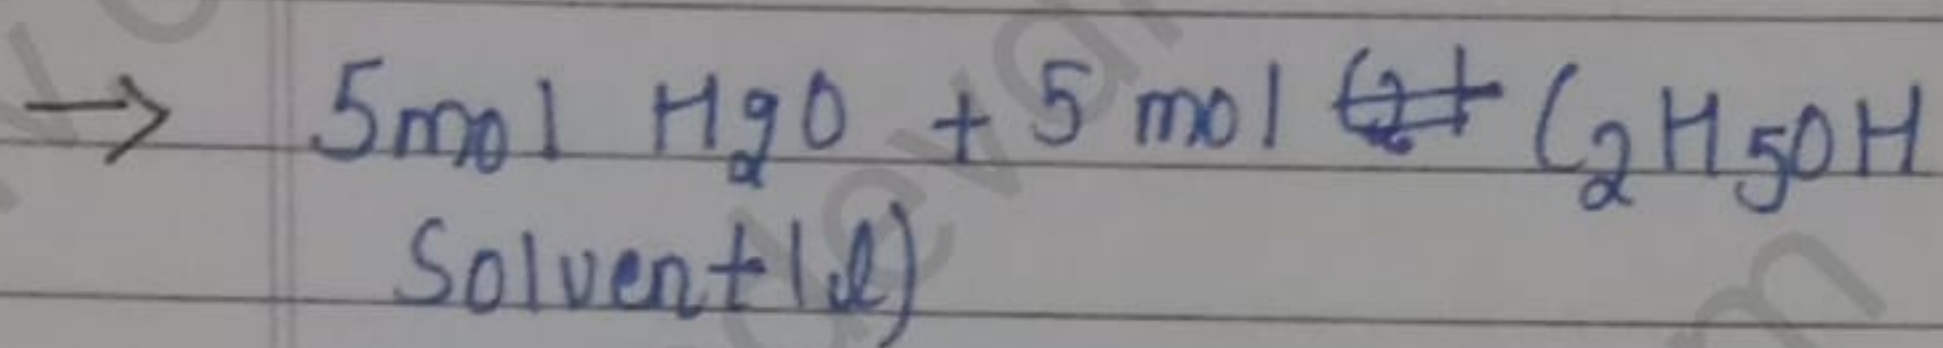 → 5mol H2O + 5 mol C2H5OH
Solvent (l)